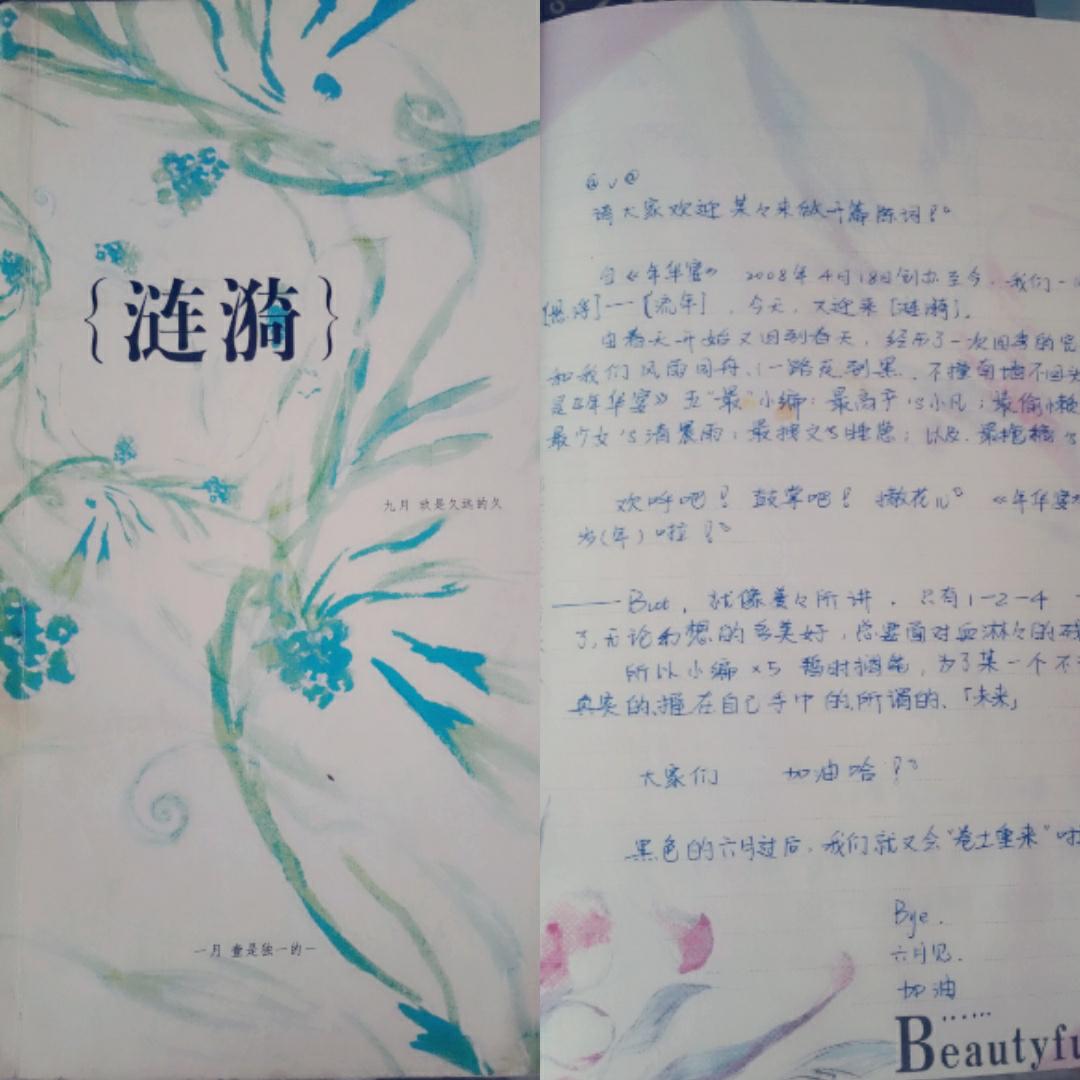 {涟漪}
九月 玖是久远的久
一月 壹是独一的一
@ v @
请大家欢迎某々来做开篇陈词!
自《年华宴》 2008年4月18日创办至今,我们一
【流年】,今天,又迎来【涟漪】。
由春天开始又回到春天,经历了一次四季的
和我们风雨同舟、一路走到黑、不撞南墙不回头
是《年华宴》五“最”小编:最高产's小凡;最偷懒
最少女's清晨雨;最拽文's 总;以及,最
欢呼吧! 鼓掌吧! 撒花儿 《年华宴
岁(年)啦!
——But,就像姜々所讲,只有1-2-4
了,无论幻想的多美好,总要面对血淋々的
所以小编×5 暂时搁笔,为了某一个不
真实的、握在自己手中的、所谓的、「未来」
大家们 加油哈!
黑色的六月过后,我们就又会“卷土重来”啦
Bye.
六月见.
加油
......
Beautyfu